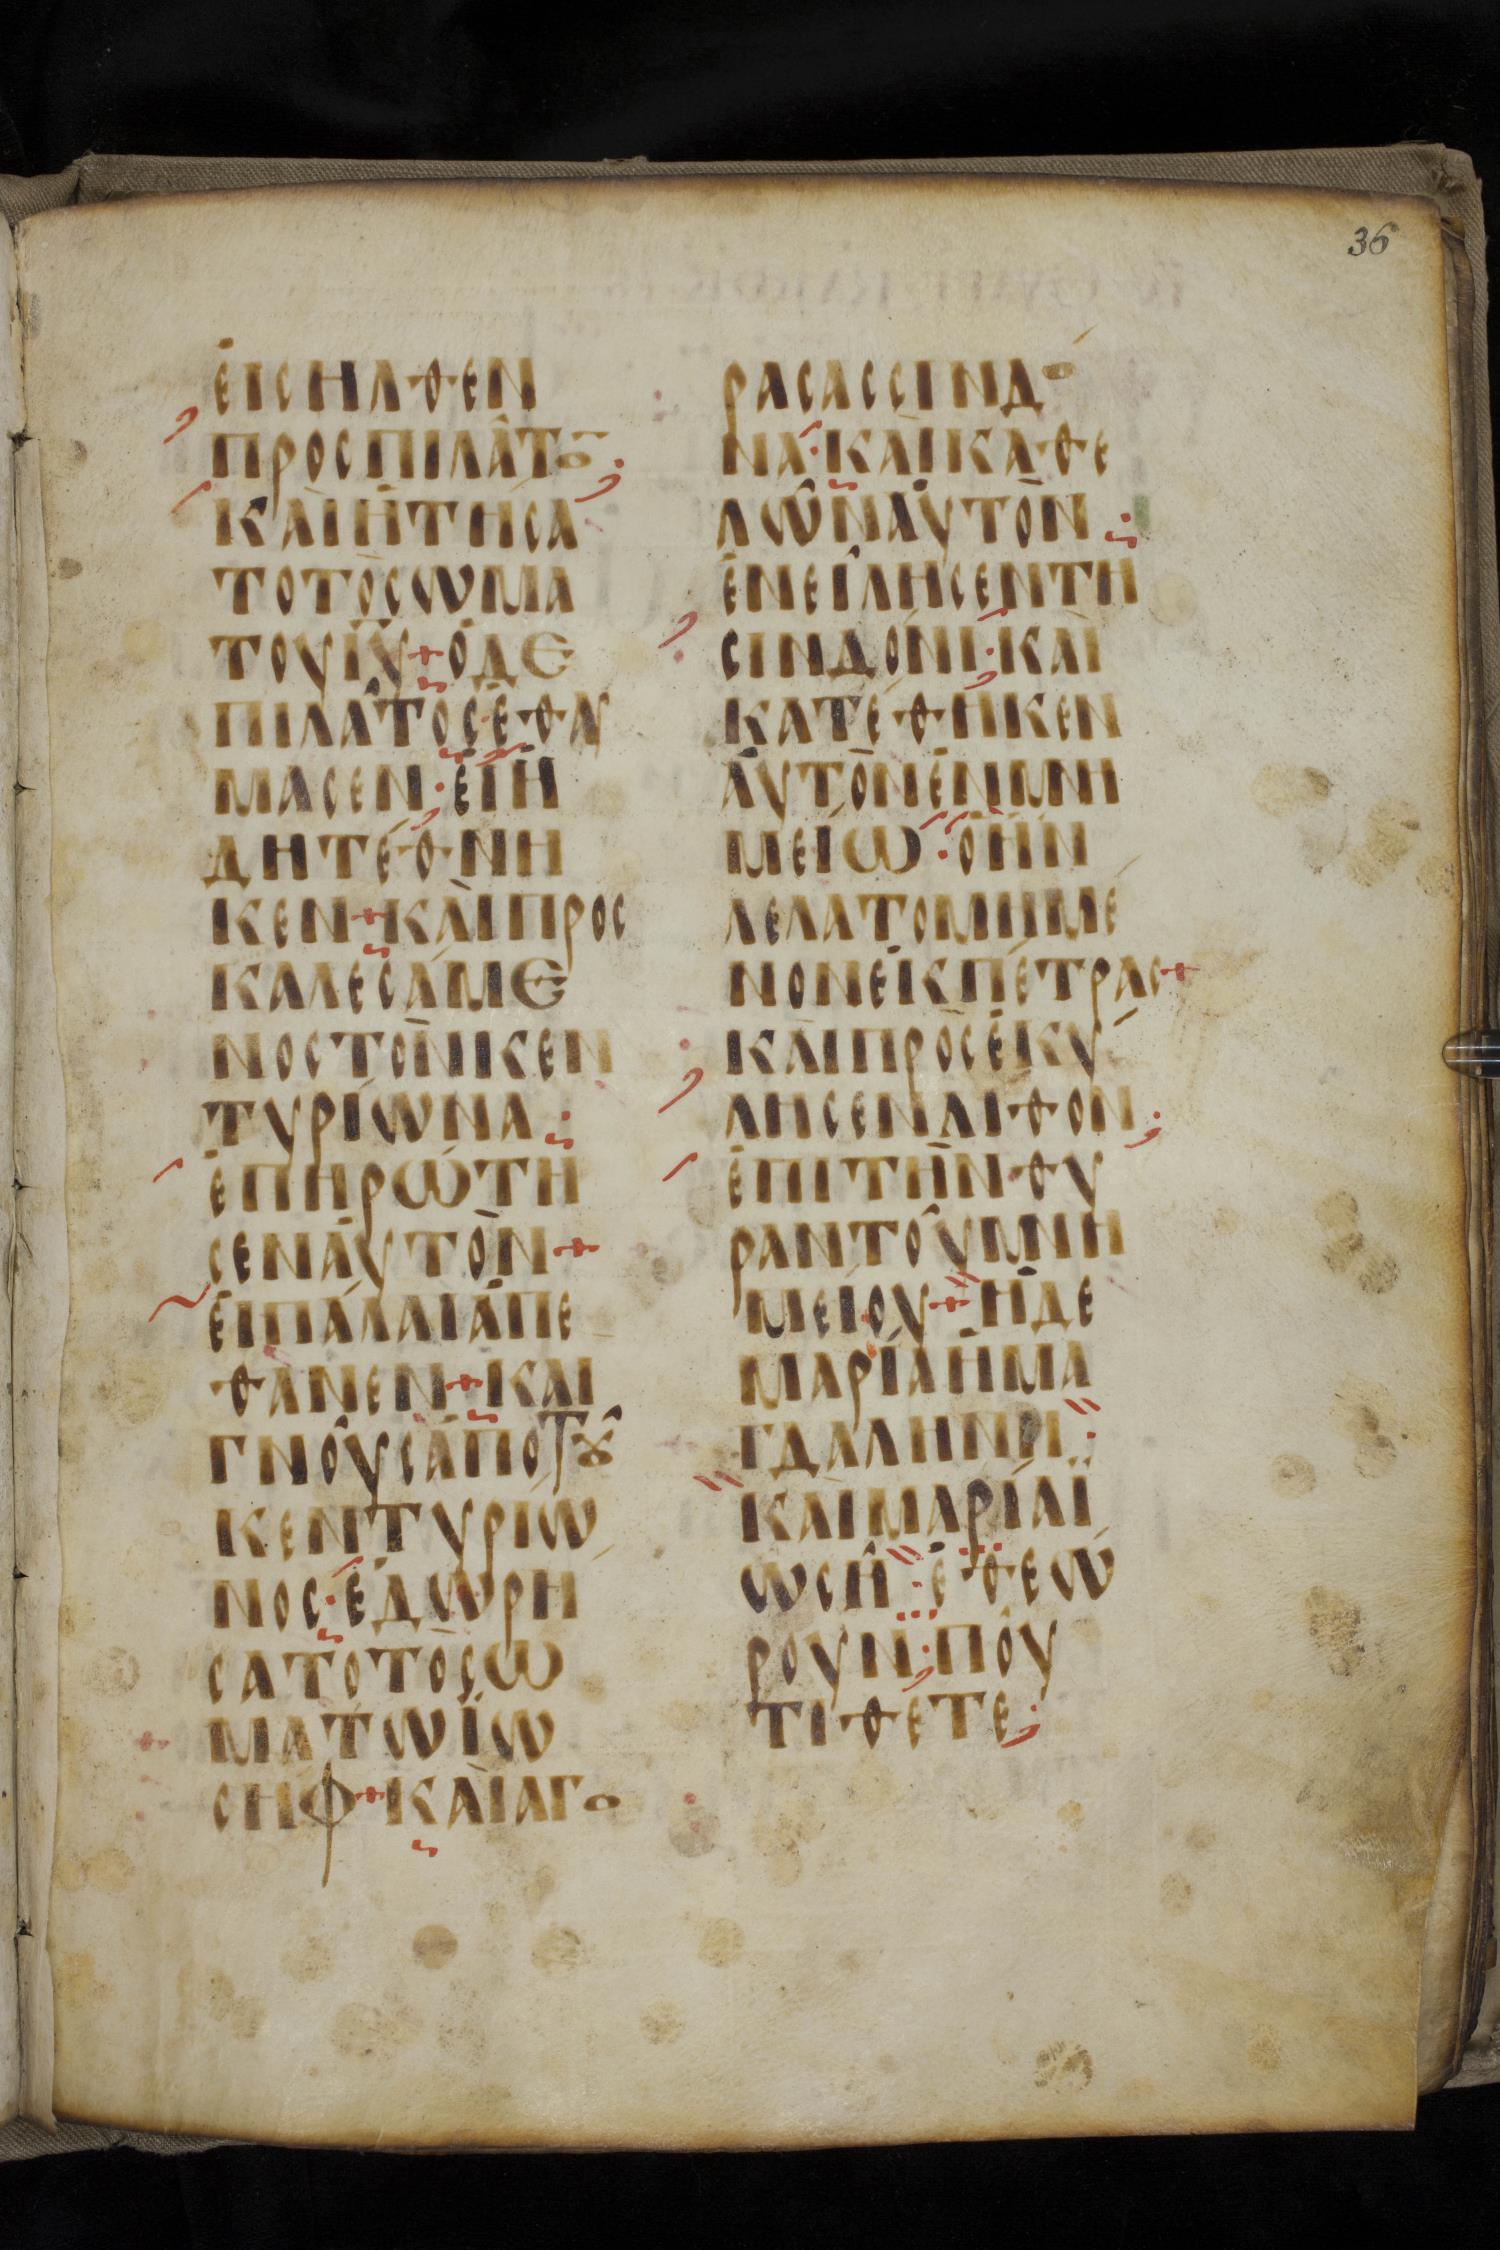 36
ἐισῆλθεν
προςπιλᾶτο̅
κὰιἠτήσα
τοτὸσωμα
τουἰ̅υ̅+ὁδε
πιλᾶτοσἐθαυ
μασεν·ἐιἤ
δητέθνη
κεν+κὰιπρος
καλεσάμε
νοςτὸνκεν
τυρίωνα:
ἐπηρώτη
σεναὐτὸν+
ἐιπάλαιἀπε
θανεν+και
γνοὺσἀποτȣ̂
κεντυρίω
νος·ἐδωρη
σατοτὸσω
ματῶϊω
σήφ+κὰιαγο
ρασασσινδό
να·κὰικαθε
λὼναὐτὸν:
ἐνείλησεντη
σινδόνι·κὰι
κατέθηκεν
ἀυτὸνἐνμνη
μείω·ὁῆν
λελατομημέ
νονἐκπέτρας+
κὰιπροσἐκύ
λησενλιθον:
ἐπιτὴνθυ
ραντοῦμνη
μείου+ἡδε
μαρίαἡμα
γδαληνὴ:
κὰιμαρίαϊ
ωσῆ:ἐθεώ
ρουν:ποῦ
τιθεται: